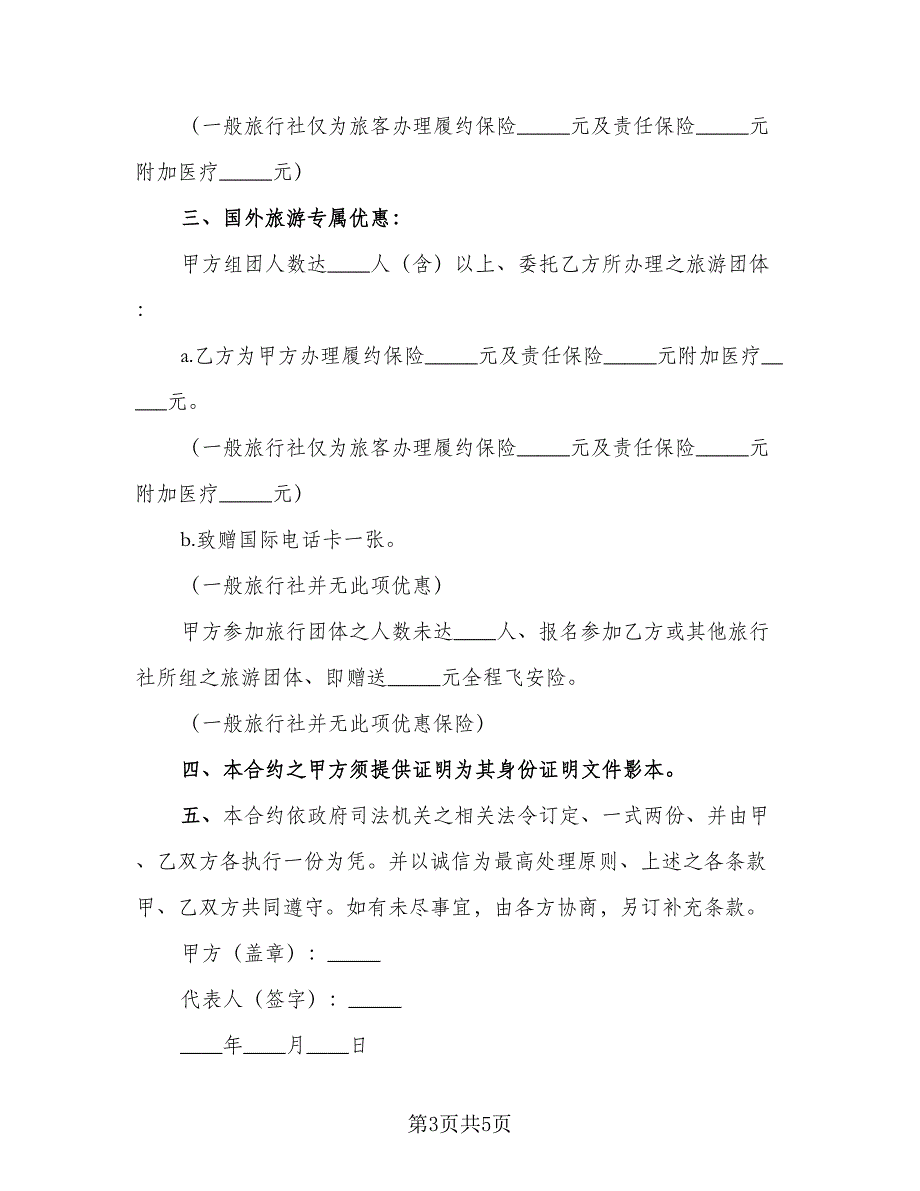 （一般旅行社仅为旅客办理履约保险_____元及责任保险_____元
附加医疗_____元）
三、国外旅游专属优惠：
甲方组团人数达____人（含）以上、委托乙方所办理之旅游团体
：
a.乙方为甲方办理履约保险_____元及责任保险_____元附加医疗__
___元。
（一般旅行社仅为旅客办理履约保险_____元及责任保险_____元
附加医疗_____元）
b.致赠国际电话卡一张。
（一般旅行社并无此项优惠）
甲方参加旅行团体之人数未达____人、报名参加乙方或其他旅行
社所组之旅游团体、即赠送_____元全程飞安险。
（一般旅行社并无此项优惠保险）
四、本合约之甲方须提供证明为其身份证明文件影本。
五、本合约依政府司法机关之相关法令订定、一式两份、并由甲
、乙双方各执行一份为凭。并以诚信为最高处理原则、上述之各条款
甲、乙双方共同遵守。如有未尽事宜，由各方协商，另订补充条款。
甲方（盖章）：_____
代表人（签字）：_____
____年____月____日
第3页共5页